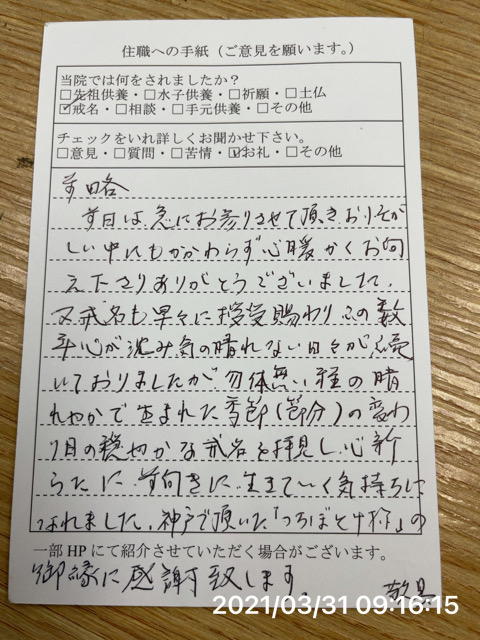 住職への手紙（ご意見を願います。）
当院では何をされましたか？
□先祖供養・□水子供養・□祈願・□土仏
☑戒名・□相談・□手元供養・□その他
チェックをいれ詳しくお聞かせ下さい。
□意見・□質問・□苦情・☑お礼・□その他
前略
前日は急にお参りさせて頂きおいそが
しい中にもかかわらず心暖かくお向
え下さりありがとうございました、
又戒名も早々に授受賜わりこの数
年心が沈み気の晴れない日々が続
いておりましたが勿体無い程の晴
れやかで生まれた季節(節分)の変わ
り目の穏やかな戒名を拝見し心新
らたに前向きに生きていく気持ちに
なれました、神戸で頂いた「つぼと 」の
一部HPにて紹介させていただく場合がございます。
御縁に感謝致します。
敬具
2021/03/31 09:16:15